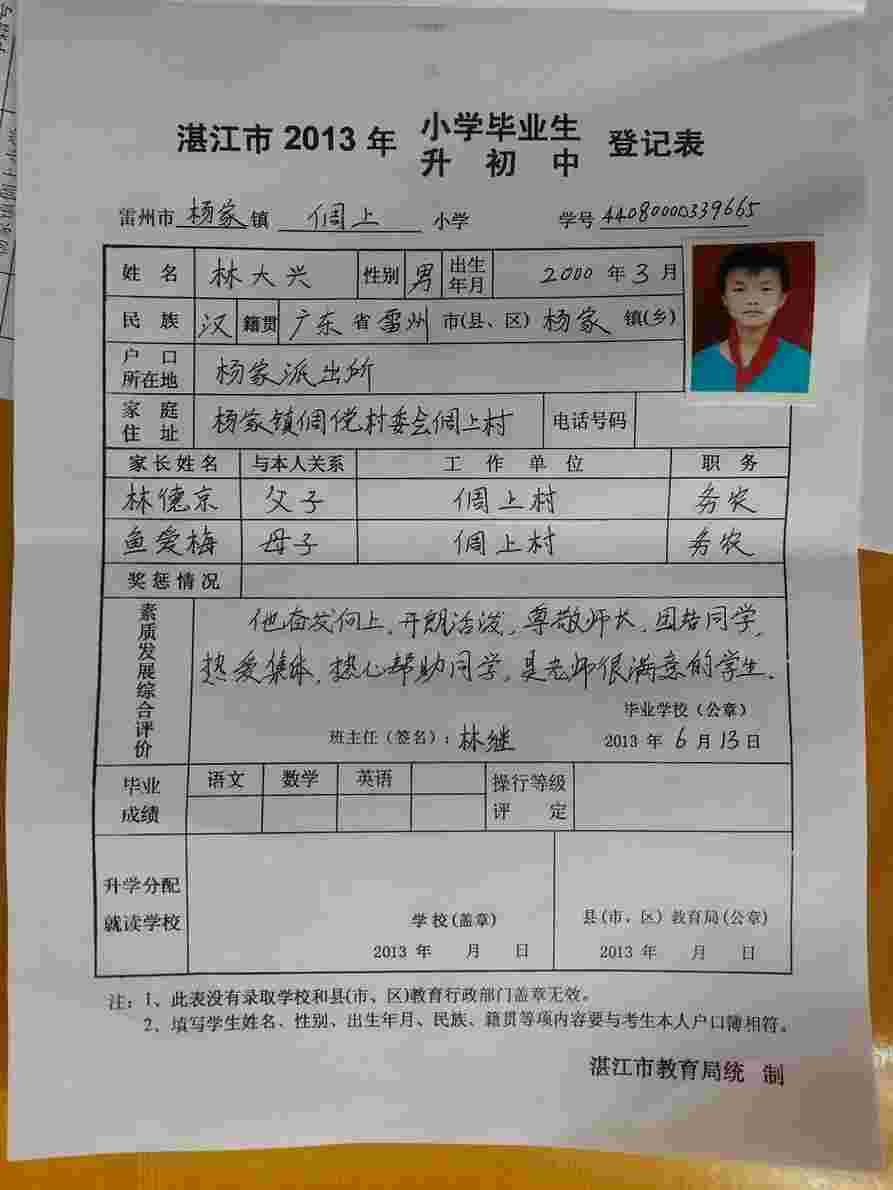 湛江市 2013 年 小学毕业生 登记表
升 初 中
雷州市 杨家 镇 倜上 小学 学号 44080000339665
姓 名 林大兴 性别 男 出生年月 2000 年 3 月
民 族 汉 籍贯 广东 省 雷州 市(县、区) 杨家 镇(乡)
户口所在地 杨家派出所
家庭住址 杨家镇倜党村委会倜上村 电话号码
家长姓名 与本人关系 工 作 单 位 职 务
林德京 父子 倜上村 务农
鱼爱梅 母子 倜上村 务农
奖惩情况
素质发展综合评价
他奋发向上,开朗活泼,尊敬师长,团结同学,
热爱集体,热心帮助同学,是老师很满意的学生.
毕业学校(公章)
班主任(签名): 林继 2013 年 6 月 13 日
毕业成绩 语文 数学 英语 操行等级评 定
升学分配
就读学校
学校(盖章) 县(市、区)教育局(公章)
2013 年 月 日 2013 年 月 日
注: 1、此表没有录取学校和县(市、区)教育行政部门盖章无效。
2、填写学生姓名、性别、出生年月、民族、籍贯等项内容要与考生本人户口簿相符。
湛江市教育局统 制